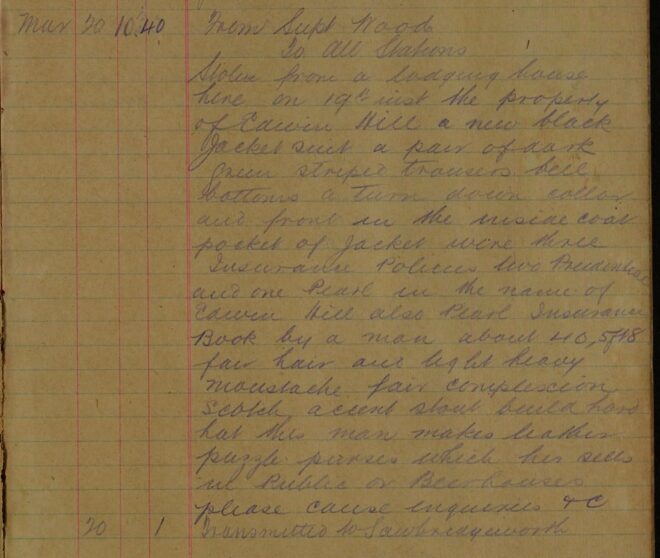 Mar 20 10 40 From Supt Wood
To All Stations
Stolen from a lodging house
here on 19th inst the property
of Edwin Hill a new black
Jacket suit a pair of dark
green striped trousers bell
bottoms a turn down collar
and front in the inside coat
pocket of Jacket were three
Insurance Policies two Prudential
and one Pearl in the name of
Edwin Hill also Pearl Insurance
Book by a man about 40, 5ft8
fair hair and light heavy
moustache fair complexion
Scotch accent stout build hard
hat this man makes leather
puzzle purses which her sells
in Public or Beerhouses
please cause enquiries &C
20 1 Transmitted to Sawbridgeworth